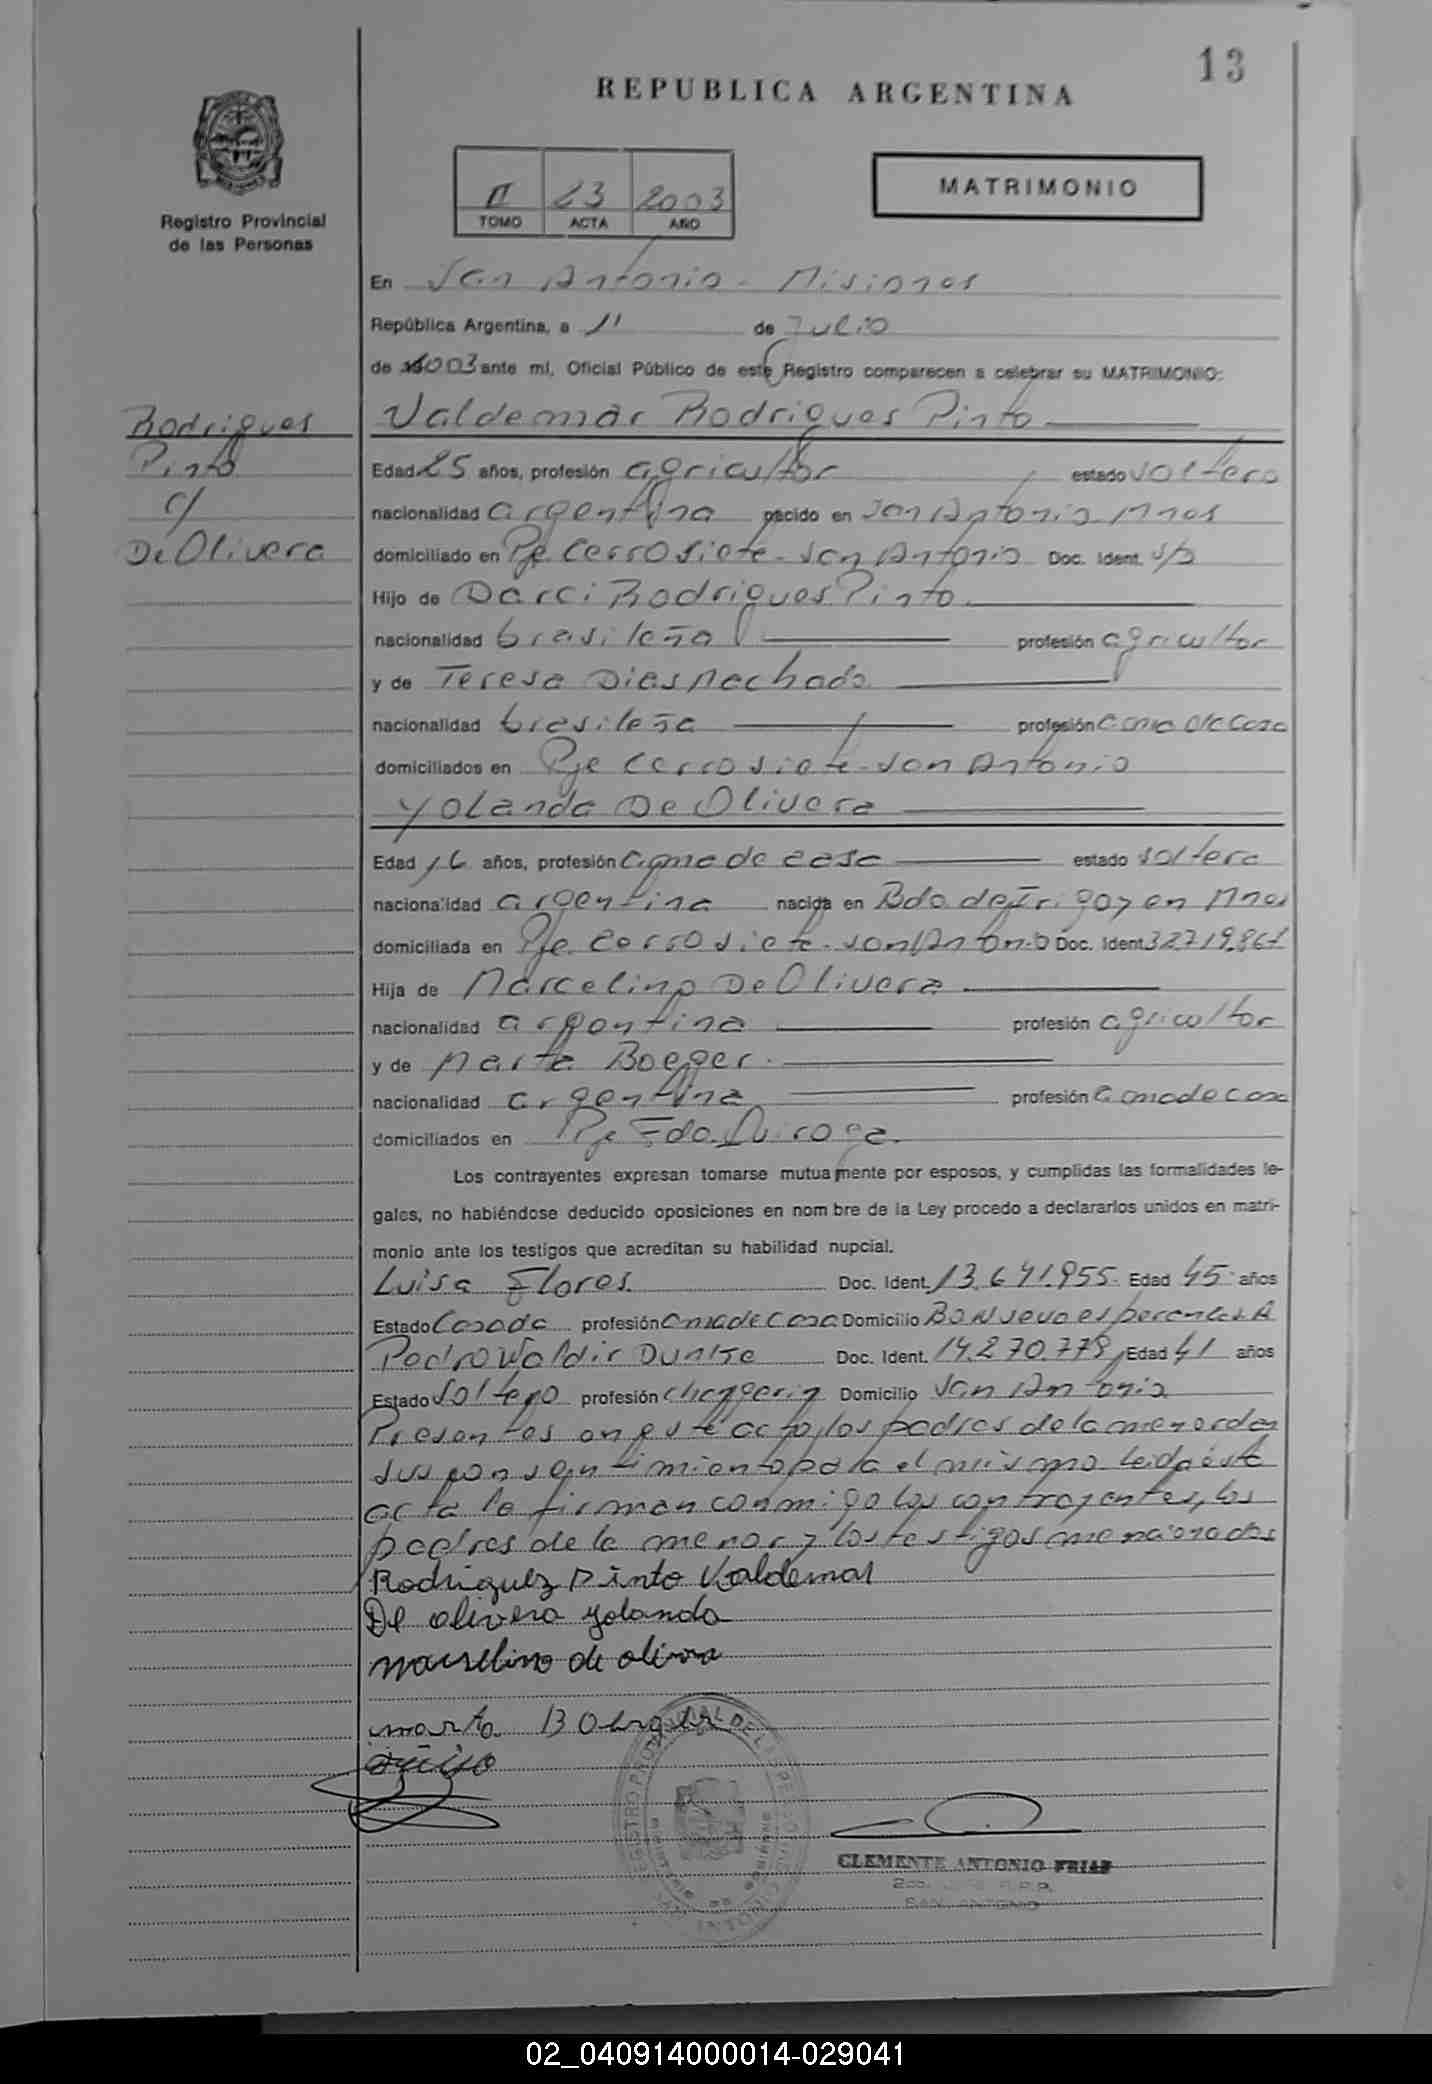 13
REPUBLICA ARGENTINA
II 23 2003
TOMO ACTA AÑO
MATRIMONIO
Registro Provincial
de las Personas
En San Antonio - Misiones
República Argentina, a 11 de Julio
de 2003 ante mí, Oficial Público de este Registro comparecen a celebrar su MATRIMONIO:
Rodrigues
Pinto
c/
De Olivera
Valdemar Rodrigues Pinto
Edad 25 años, profesión agricultor estado soltero
nacionalidad argentina nacido en San Antonio Mnes
domiciliado en Pje. Cerro Siete - San Antonio Doc. Ident. s/D
Hijo de Darci Rodrigues Pinto
nacionalidad brasileña profesión agricultor
y de Teresa Dias Machado
nacionalidad brasileña profesión ama de casa
domiciliados en Pje Cerro Siete - San Antonio
Yolanda De Olivera
Edad 16 años, profesión ama de casa estado soltera
nacionalidad argentina nacida en Bdo. de Irigoyen Mnes
domiciliada en Pje. Cerro Siete - San Antonio Doc. Ident. 32.719.861
Hija de Marcelino De Olivera
nacionalidad argentina profesión agricultor
y de Marta Boeger.
nacionalidad argentina profesión ama de casa
domiciliados en Pje Fdo. Quiroga.
Los contrayentes expresan tomarse mutuamente por esposos, y cumplidas las formalidades le-
gales, no habiéndose deducido oposiciones en nom bre de la Ley procedo a declararlos unidos en matri-
monio ante los testigos que acreditan su habilidad nupcial.
Luisa Flores Doc. Ident. 13.641.955 Edad 45 años
Estado Casada profesión ama de casa Domicilio Bo Nueva esperanza S.A
Pedro Waldir Dunke Doc. Ident. 14.270.778 Edad 41 años
Estado soltero profesión Domicilio San Antonio
Presentes en este acto, los padres de la menor dan
sus consentimiento para el mismo leida ésta
acta la firman conmigo los contrayentes, los
padres de la menor y los testigos mencionados
Rodriguez Pinto Valdemar
De olivera yolanda
marselino de olivera
marta
REGISTRO PROVINCIAL DE LAS PERSONAS
CLEMENTE ANTONIO FRIAS
SAN ANTONIO
02_040914000014-029041